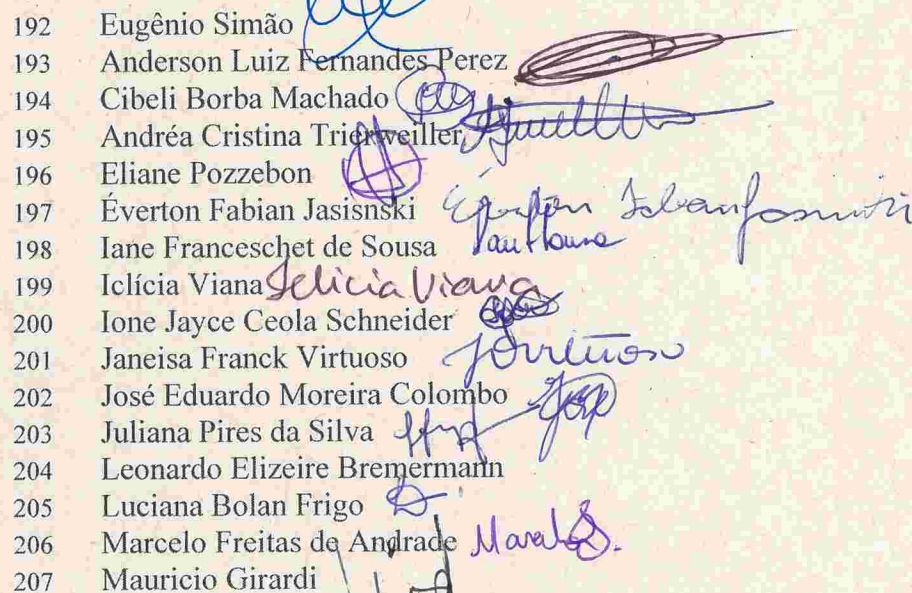 192 Eugênio Simão
193 Anderson Luiz Fernandes Perez
194 Cibeli Borba Machado
195 Andréa Cristina Trierweiller
196 Eliane Pozzebon
197 Éverton Fabian Jasisnski
198 Iane Franceschet de Sousa
199 Iclícia Viana Iclicia Viana
200 Ione Jayce Ceola Schneider
201 Janeisa Franck Virtuoso JVirtuoso
202 José Eduardo Moreira Colombo
203 Juliana Pires da Silva
204 Leonardo Elizeire Bremermann
205 Luciana Bolan Frigo
206 Marcelo Freitas de Andrade
207 Mauricio Girardi